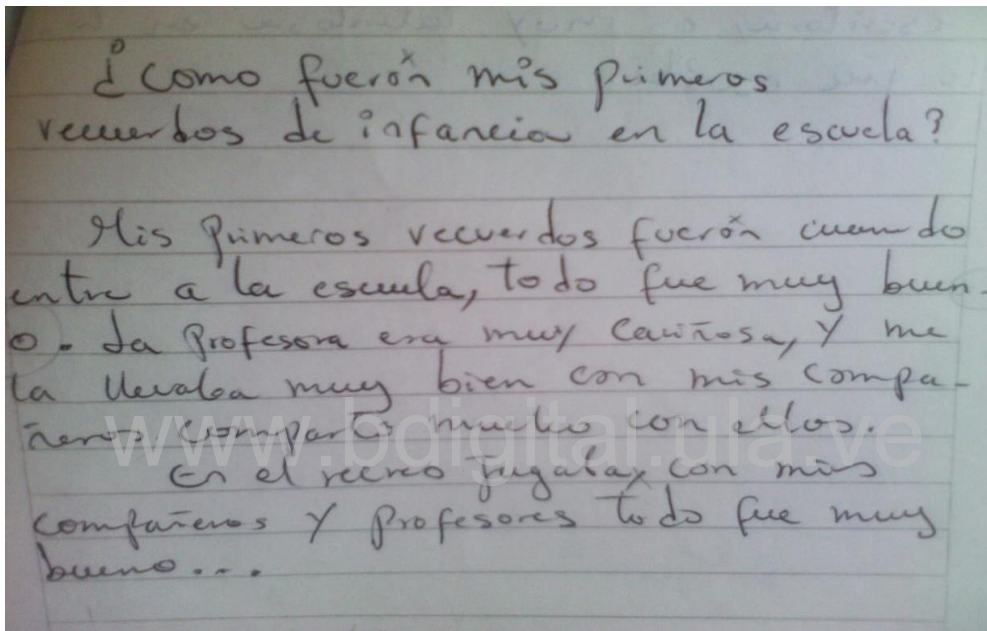 ¿Como fuerón mis primeros
recuerdos de infancia en la escuela?
Mis primeros recuerdos fuerón cuando
entre a la escuela, todo fue muy buen-
o. La profesora era muy cariñosa, y me
la llevaba muy bien con mis compa-
ñeros compartí mucho con ellos.
En el recreo jugaba, con mis
compañeros y profesores todo fue muy
bueno...
www.bdigital.ula.ve